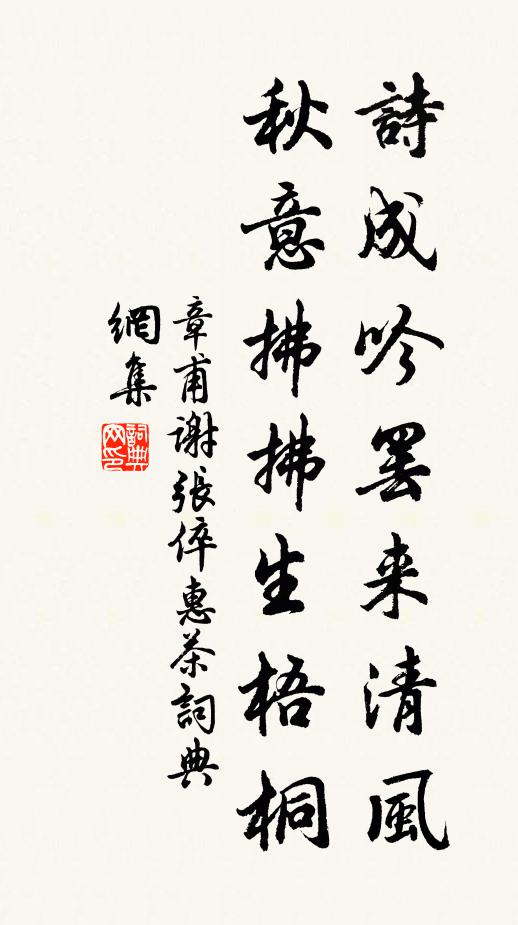 詩成吟罢来清風
秋意拂拂生梧桐
章甫謝張倅惠茶詞典
網集
詞典
网印